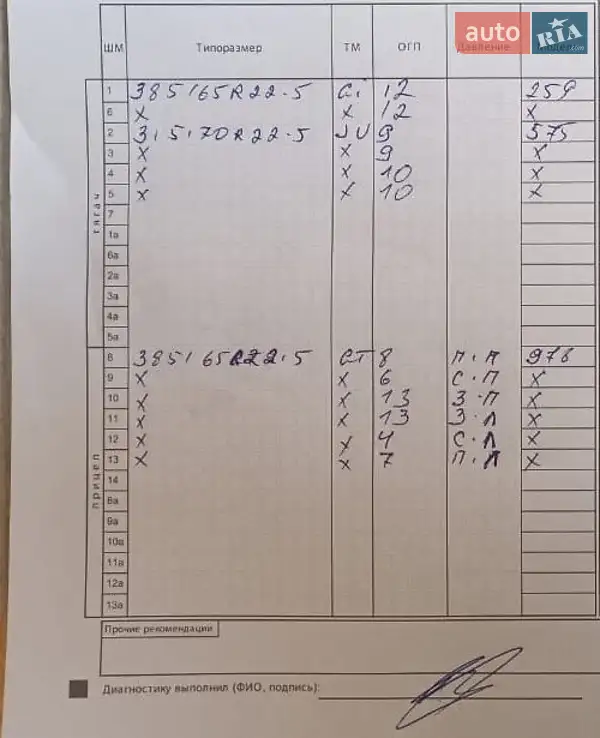 auto RIA.com
ШМ Типоразмер ТМ ОГП Давление Модель
тягач
1 385/65R22.5 Ci 12 259
6 X X 12 X
2 315/70R22.5 JU 9 575
3 X X 9 X
4 X X 10 X
5 X X 10 X
7
1а
6а
2а
3а
4а
5а
прицеп
8 385/65R22.5 СТ 8 П.П 976
9 X X 6 С.П X
10 X X 13 З.П X
11 X X 13 З.Л X
12 X X 4 С.Л X
13 X X 7 П.Л X
14
8а
9а
10а
11а
12а
13а
Прочие рекомендации
Диагностику выполнил (ФИО, подпись):